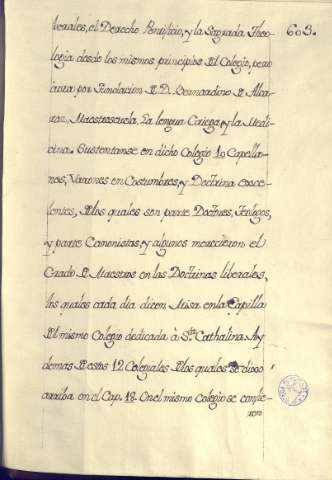 603.
berales, el Derecho Pontificio, y la Sagrada Theo-
logia desde los mismos principios del Colegio, pero
ahora por Fundacion de D. Bernardino de Alca-
raz, Maestrescuela, la lengua Griega, y la Medi-
cina. Sustentanse en dicho Colegio 10 Capella-
nos, Varones en Costumbres, y Doctrina exce-
lentes, de los quales son parte Doctores, Teologos,
y parte Canonistas, y algunos merecieron el
Grado de Maestros en las Doctrinas liberales,
los quales cada dia dicen Misa en la Capilla
del mismo Colegio dedicada à Sta. Cathalina. Ay
demas de estos 12 Colegiales de los quales se dixo
arriba en el Cap. 18. En el mismo Colegio se confie-